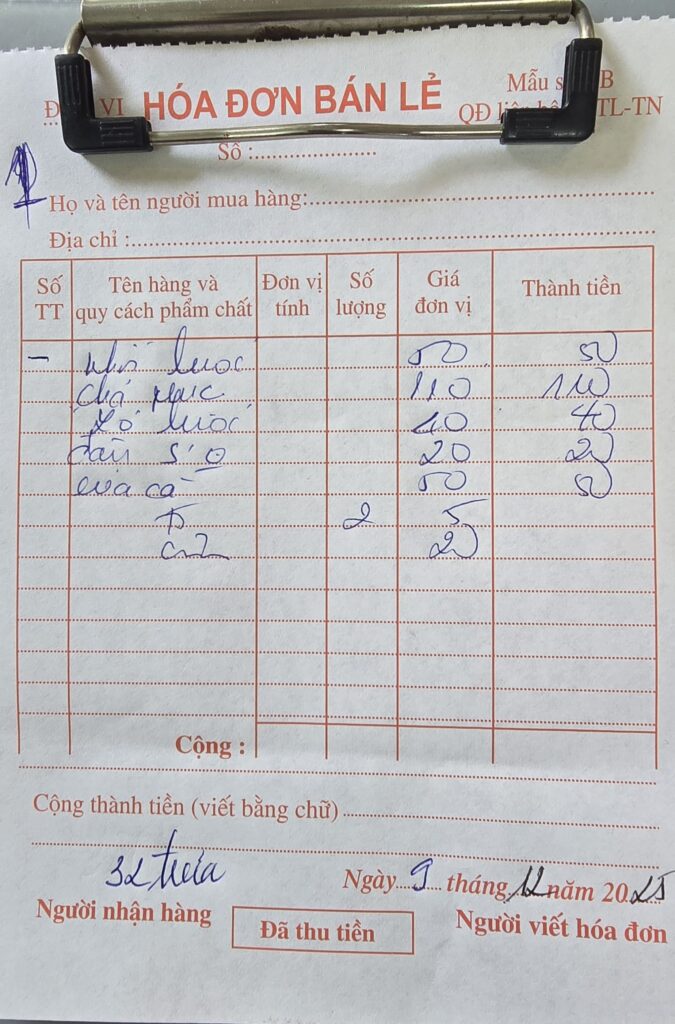 HÓA ĐƠN BÁN LẺ
Mẫu s B
VI QĐ TL-TN
Số :
1
Họ và tên người mua hàng:
Địa chỉ :
Số TT Tên hàng và quy cách phẩm chất Đơn vị tính Số lượng Giá đơn vị Thành tiền
- luoc 50 50
chả mực 110 110
luoc 40 40
20 20
cà 50 50
2 5
20
Cộng :
Cộng thành tiền (viết bằng chữ)
32 trưa
Ngày 9 tháng 12 năm 2025
Người nhận hàng
Đã thu tiền
Người viết hóa đơn